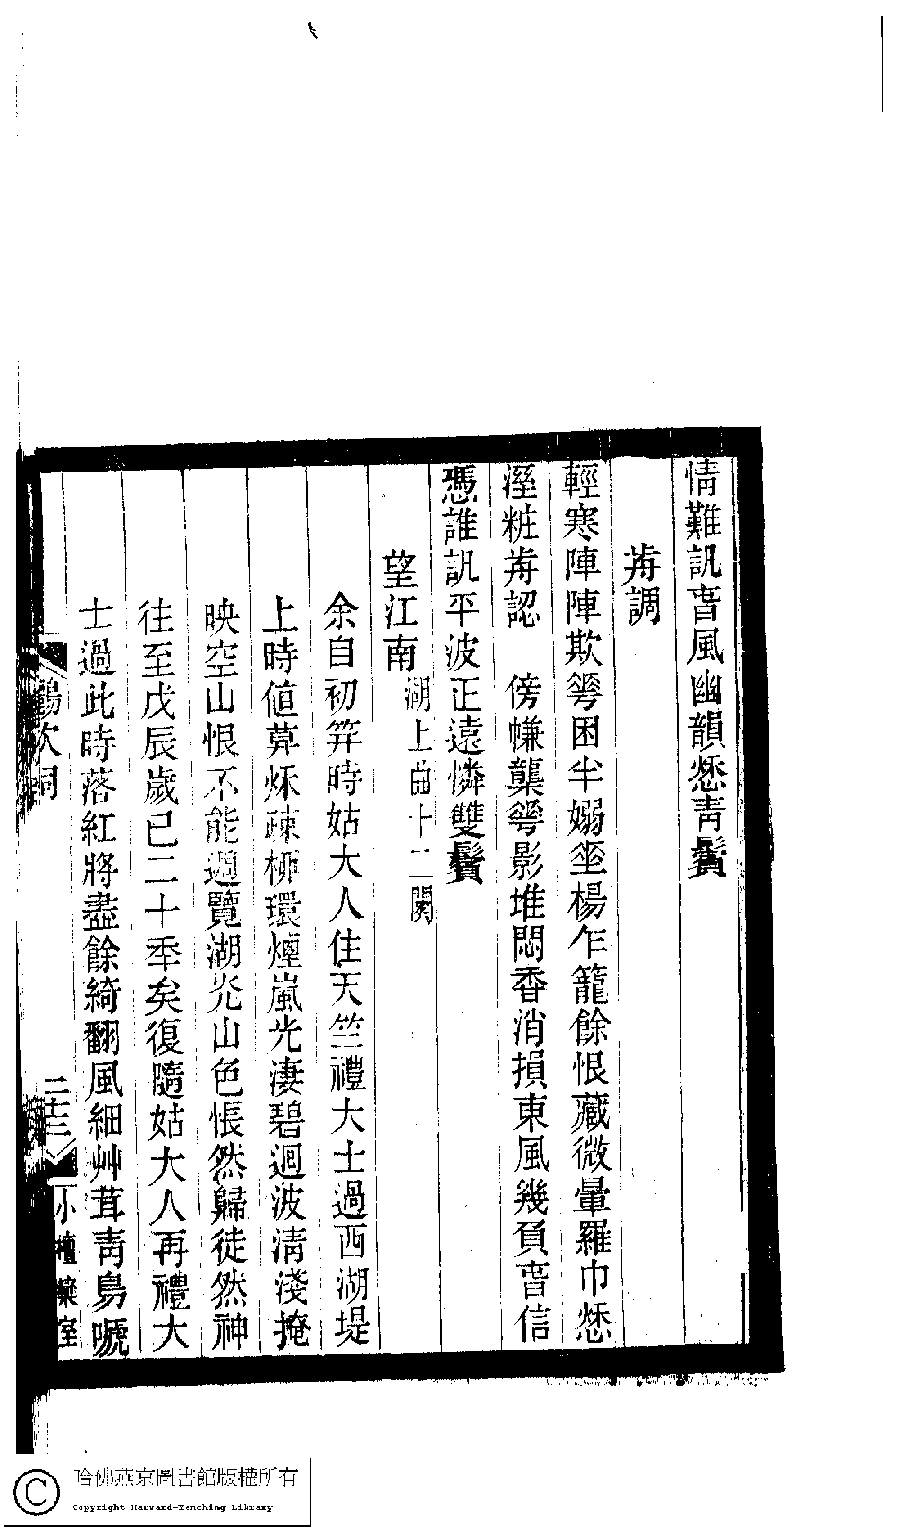 情難訊春風幽韻愁青鬢
前調
輕寒陣陣欺花困半嫋垂楊乍籠餘恨藏微暈羅巾愁
溼粧前認　傍㡘龔花影堆悶香消損東風幾負春信
憑誰訊平波正遠憐雙鬢
望江南湖上曲十二闋
余自初笄時姑大人住天竺禮大士過西湖堤
上時値暮秌疎栁環煙嵐光淒碧迴波清淺掩
映空山恨不能遍覽湖光山色悵然歸徒然神
往至戊辰歲已二十秊矣復隨姑大人再禮大
士過此時落紅將盡餘綺翻風細艸茸青鳥嗁
鸝吹詞
二十三
小檀欒室
哈佛燕京圖書館版權所有
Copyright Harvard-Yenching Library